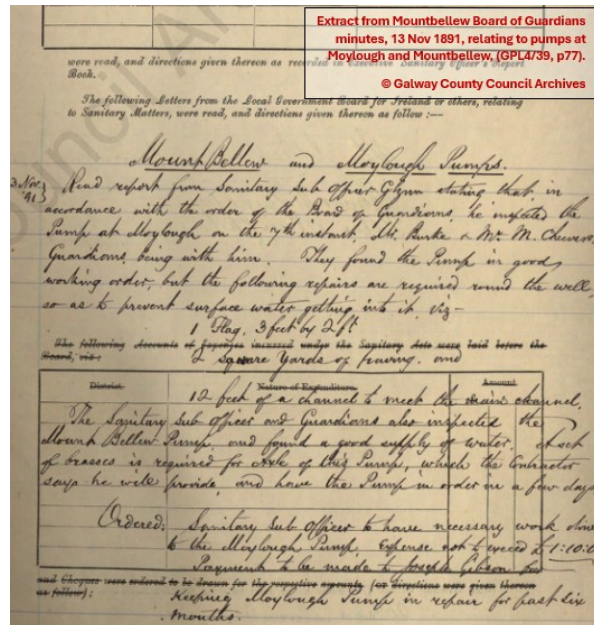 Extract from Mountbellew Board of Guardians
minutes, 13 Nov 1891, relating to pumps at
Moylough and Mountbellew, (GPL4/39, p77).
© Galway County Council Archives
were read, and directions given thereon as recorded in Executive Sanitary Officer's Report
Book.
The following Letters from the Local Government Board for Ireland or others, relating
to Sanitary Matters, were read, and directions given thereon as follow :—
Mount Bellew and Moylough Pumps.
Read report from Sanitary Sub Officer Glynn stating that in
accordance with the order of the Board of Guardians, he inspected the
Pump at Moylough on the 7th instant, Mr. Burke & Mr. M. Cheevers,
Guardians, being with him. They found the Pump in good
working order, but the following repairs are required round the well,
so as to prevent surface water getting into it, viz-
1 Flag, 3 feet by 2 ft
The following Accounts of Expenses incurred under the Sanitary Acts were laid before the
Board, viz :
2 square Yards of paving. and
District. Nature of Expenditure. Amount.
12 feet of a channel to meet the main channel.
The Sanitary Sub Officer and Guardians also inspected the
Mount Bellew Pump, and found a good supply of water. A set
of brasses is required for axle of this Pump, which the Contractor
says he will provide, and have the Pump in order in a few days
Ordered: Sanitary Sub Officer to have necessary work done
to the Moylough Pump. Expense not to exceed £1:10:0
Payment to be made to Joseph Gibson for
and Cheques were ordered to be drawn for the respective amounts (or directions were given thereon
as follow) :
Keeping Moylough Pump in repair for past six
months.